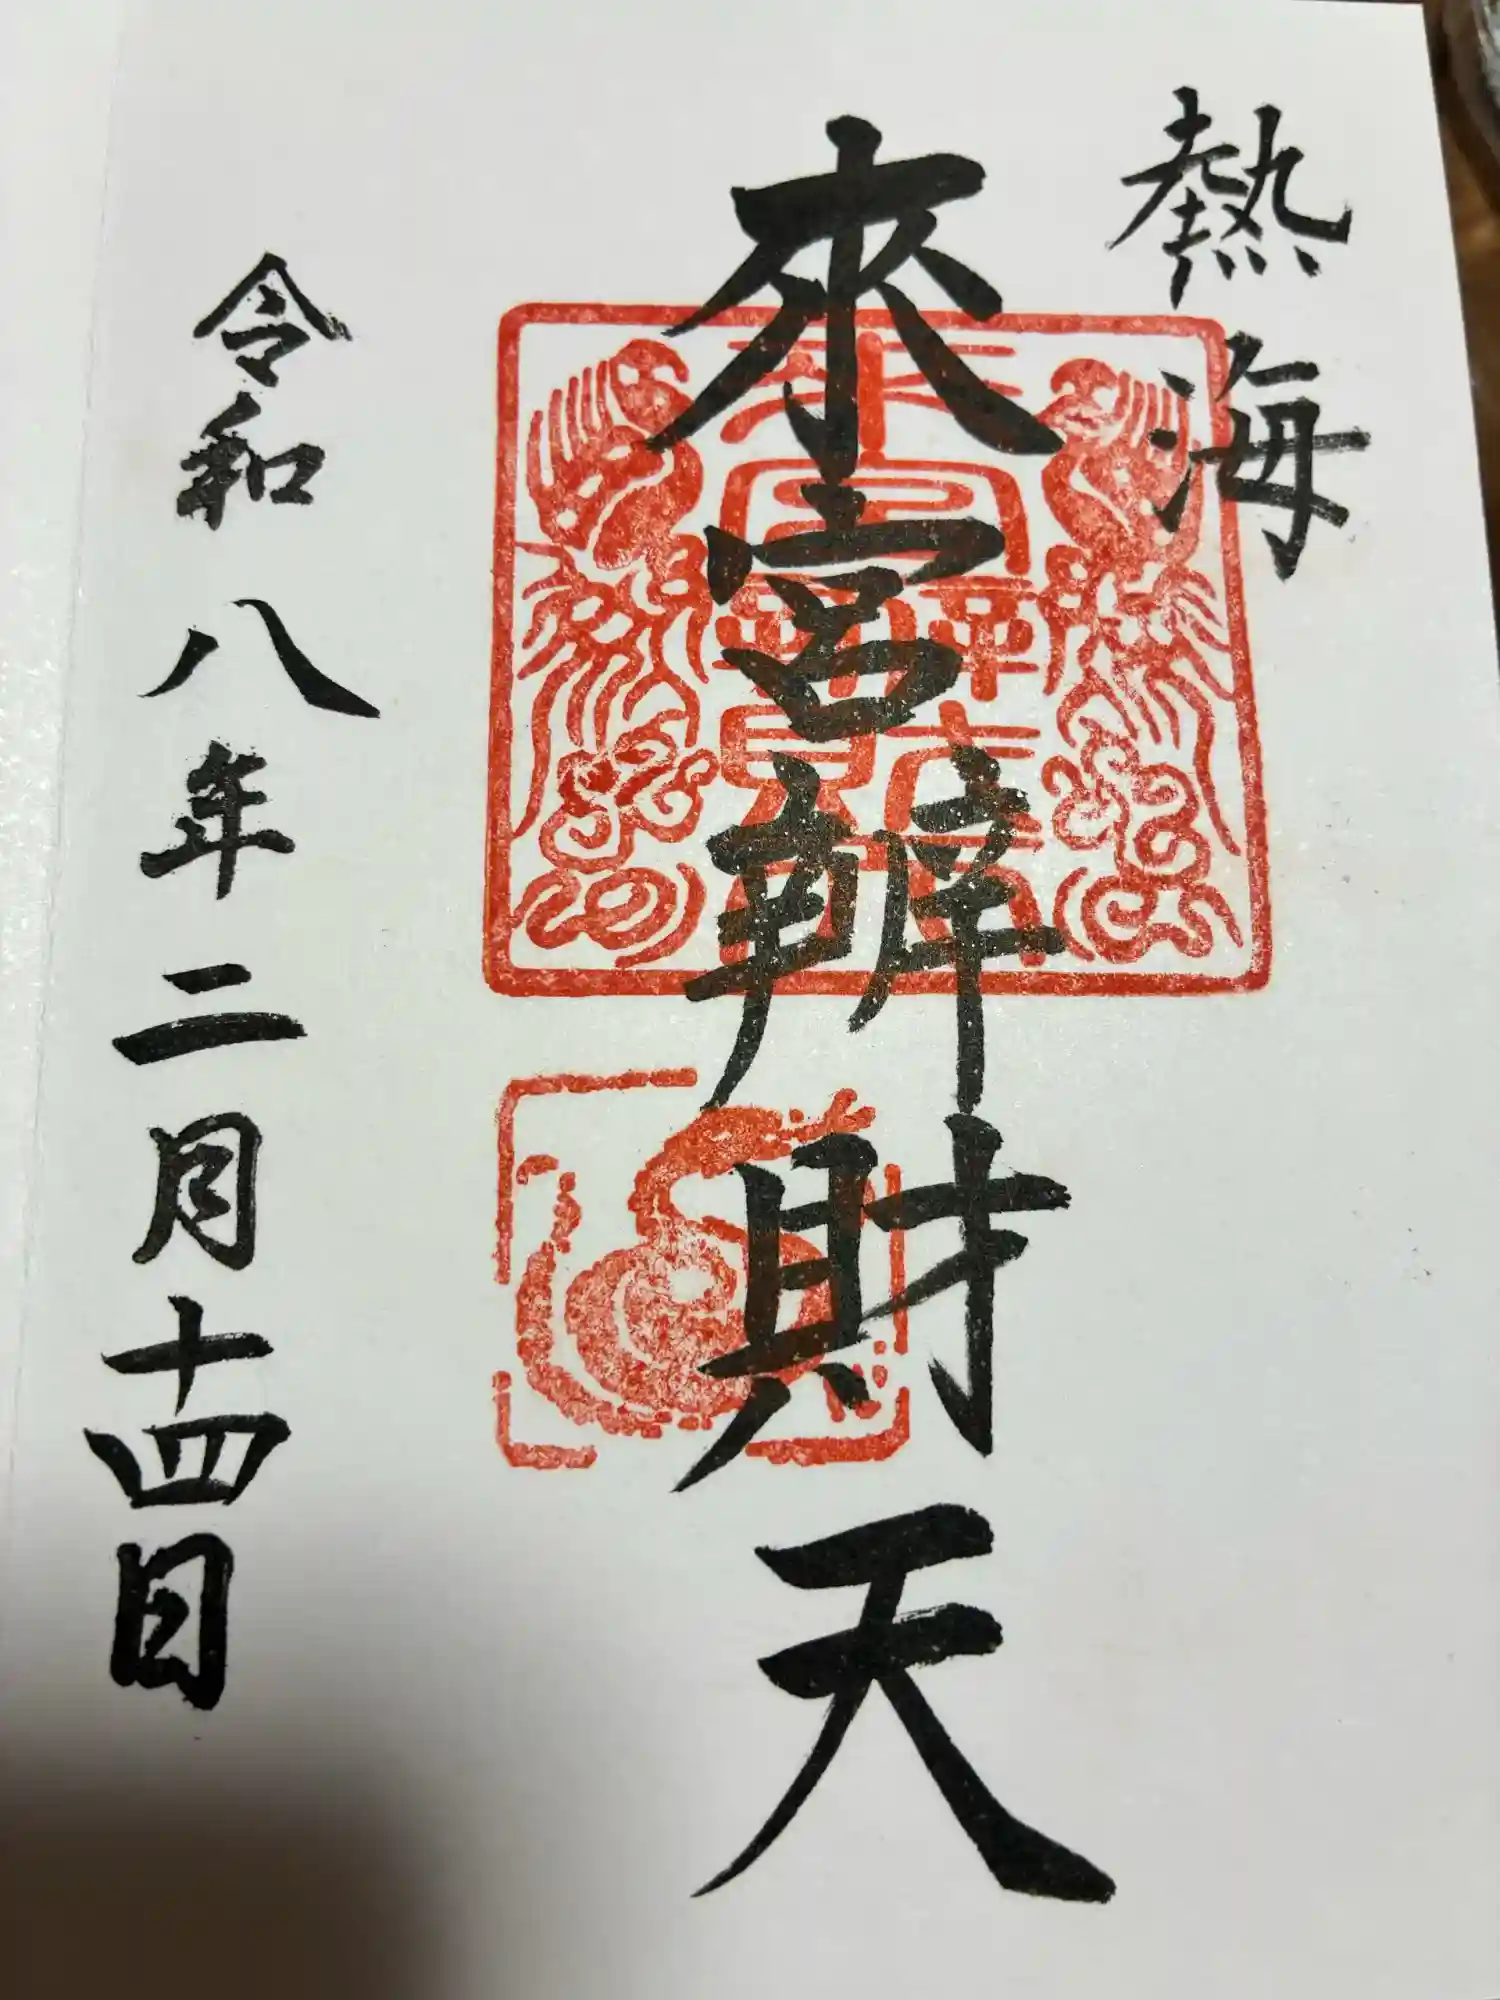 熱海
來宮辨財天
令和八年二月十四日
來宮辨財天